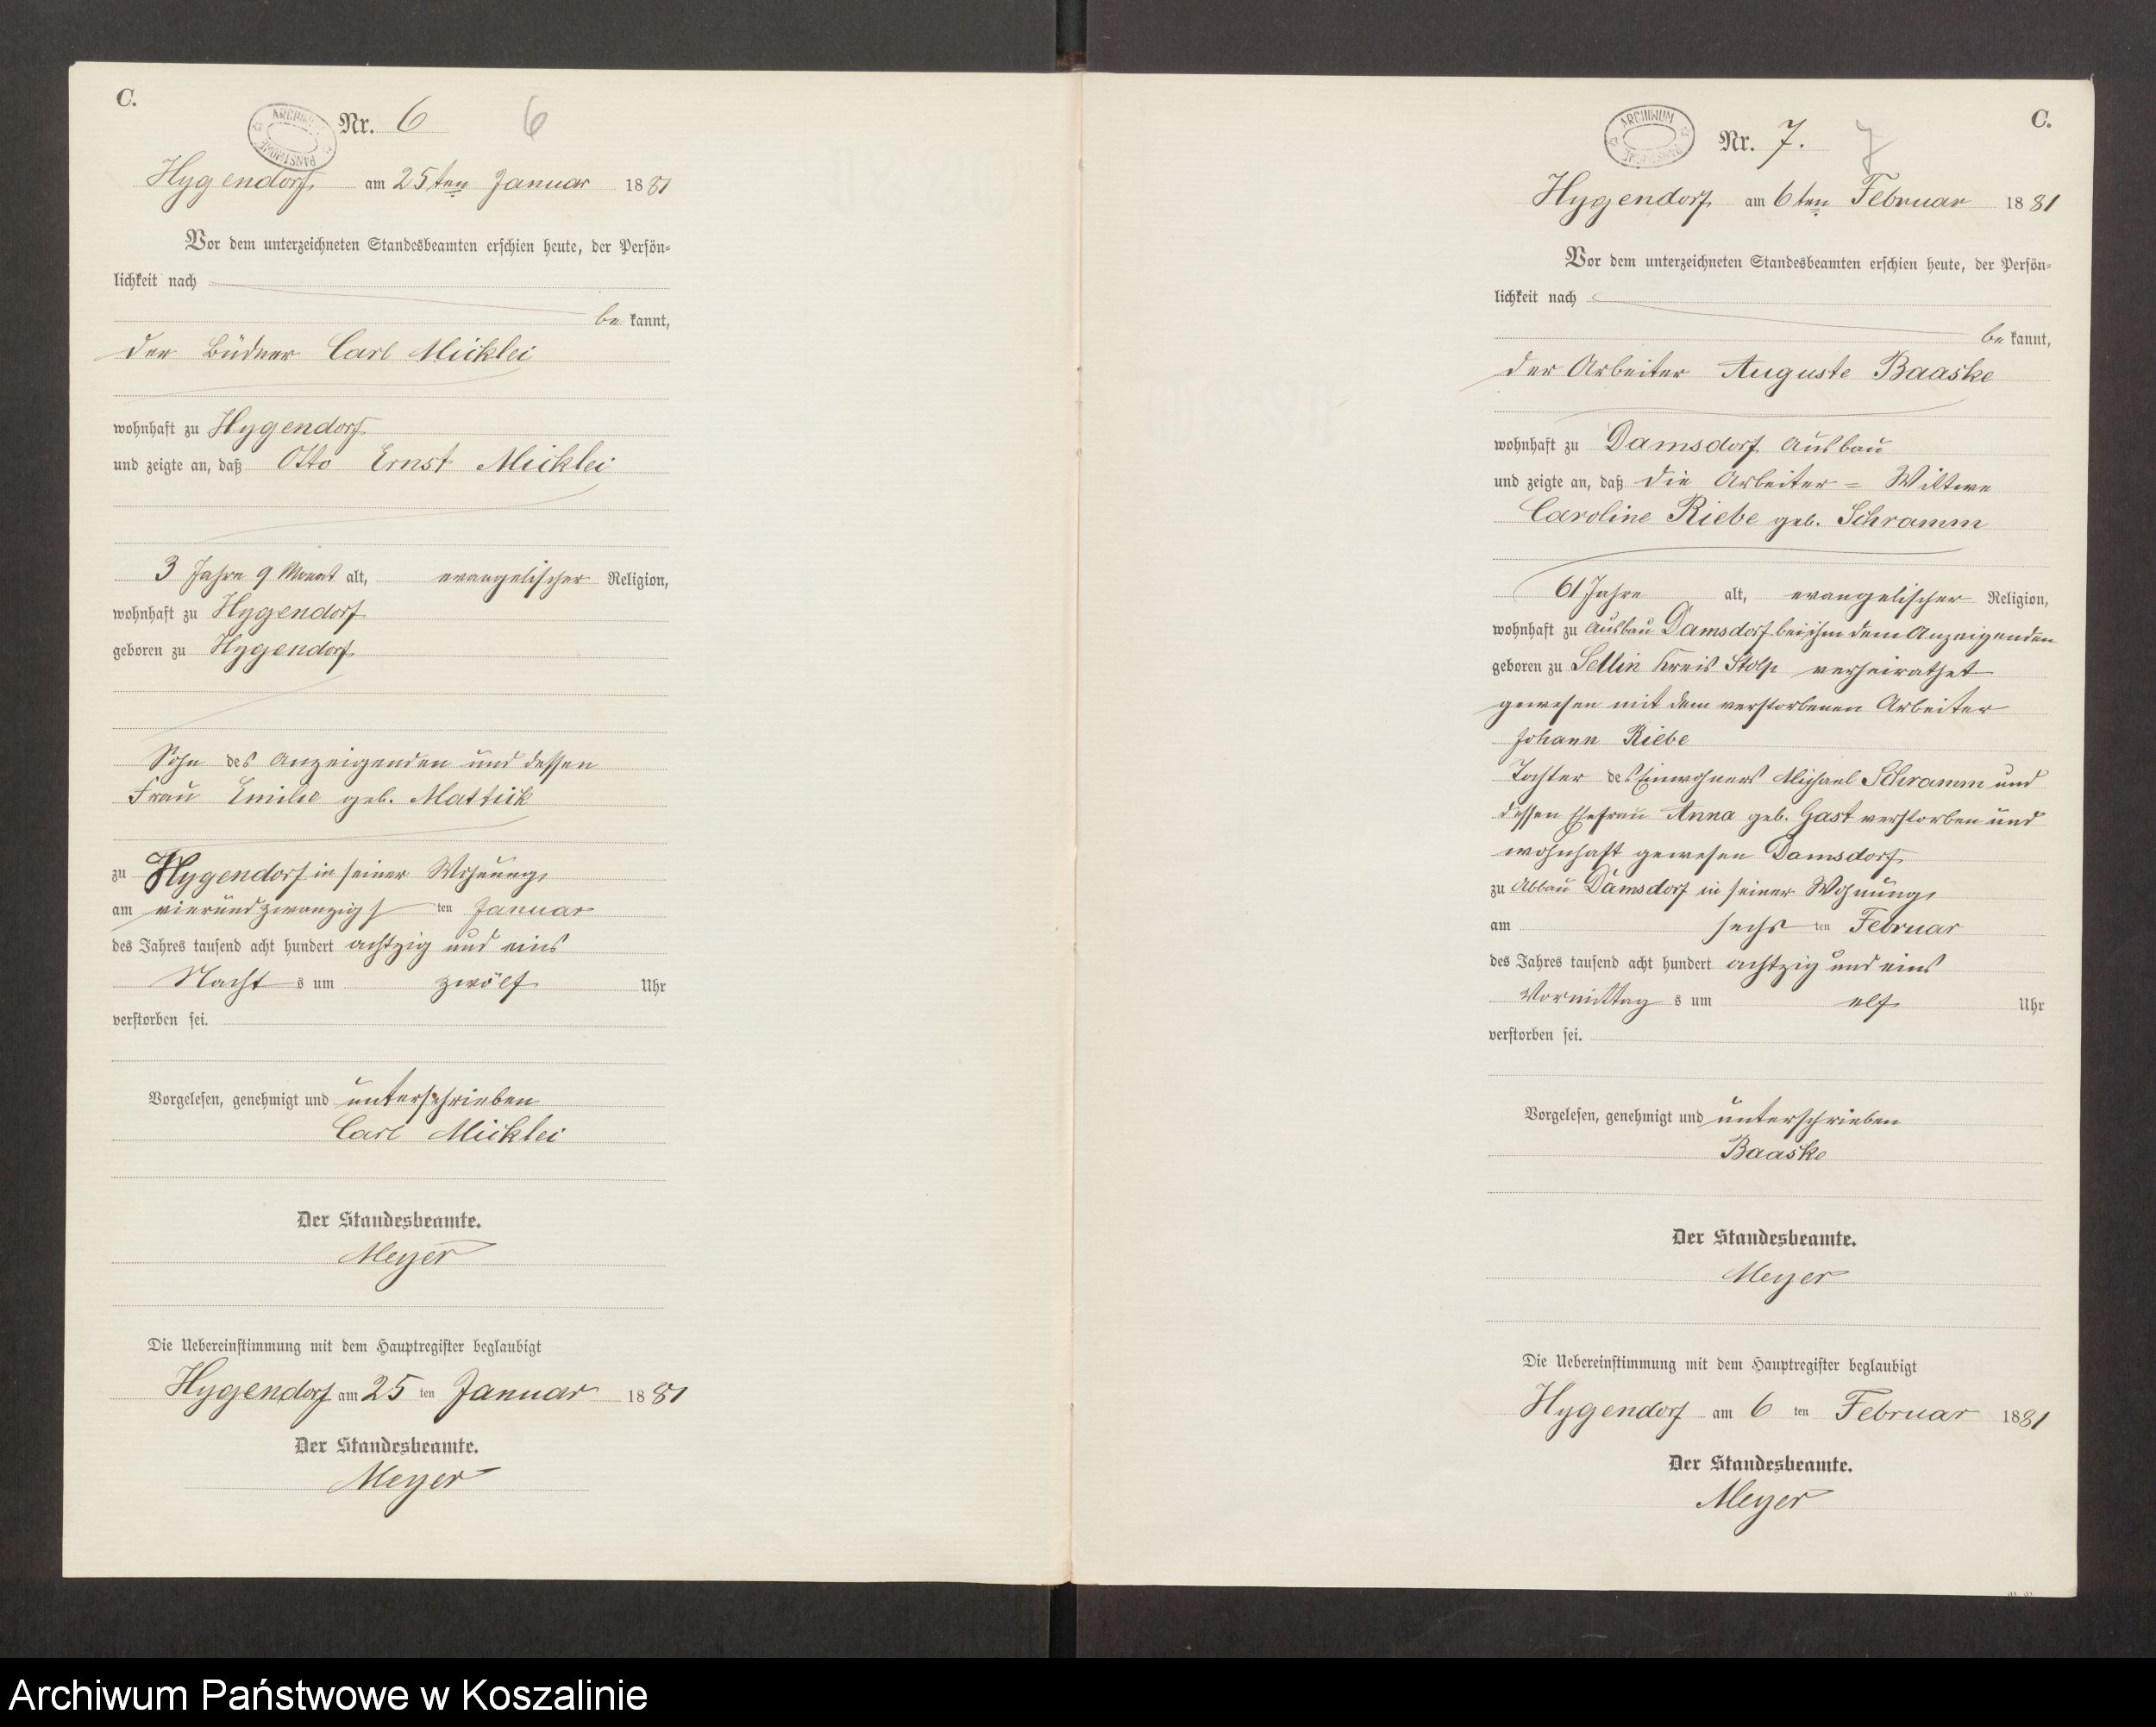 C.
Nr. 6 6
ARCHIWUM PAŃSTWOWE
Hygendorf am 25ten Januar 1881
Vor dem unterzeichneten Standesbeamten erschien heute, der Persön-
lichkeit nach
be kannt,
der Büdner Carl Micklei
wohnhaft zu Hygendorf
und zeigte an, daß Otto Ernst Micklei
3 Jahre 9 Monat alt, evangelischer Religion,
wohnhaft zu Hygendorf
geboren zu Hygendorf
Sohn des Anzeigenden und dessen
Frau Emilie geb. Mattick
zu Hygendorf in seiner Wohnung,
am vierundzwanzigs ten Januar
des Jahres tausend acht hundert achtzig und eins
Nacht s um zwölf Uhr
verstorben sei.
Vorgelesen, genehmigt und unterschrieben
Carl Micklei
Der Standesbeamte.
Meyer
Die Uebereinstimmung mit dem Hauptregister beglaubigt
Hygendorf am 25 ten Januar 1881
Der Standesbeamte.
Meyer
C.
ARCHIWUM PAŃSTWOWE
Nr. 7. 7
Hygendorf am 6ten Februar 1881
Vor dem unterzeichneten Standesbeamten erschien heute, der Persön-
lichkeit nach
be kannt,
der Arbeiter Auguste Baaske
wohnhaft zu Damsdorf Ausbau
und zeigte an, daß die Arbeiter = Wittwe
Caroline Riebe geb. Schramm
61 Jahre alt, evangelischer Religion,
wohnhaft zu Ausbau Damsdorf bei ihm dem Anzeigenden
geboren zu Sellin Kreis Stolp verheirathet
gewesen mit dem verstorbenen Arbeiter
Johann Riebe
Tochter des Einwohners Michael Schramm und
dessen Ehefrau Anna geb. Gast verstorben und
wohnhaft gewesen Damsdorf,
zu Abbau Damsdorf in seiner Wohnung,
am sechs ten Februar
des Jahres tausend acht hundert achtzig und eins
Vormittag s um elf Uhr
verstorben sei.
Vorgelesen, genehmigt und unterschrieben
Baaske
Der Standesbeamte.
Meyer
Die Uebereinstimmung mit dem Hauptregister beglaubigt
Hygendorf am 6 ten Februar 1881
Der Standesbeamte.
Meyer
Archiwum Państwowe w Koszalinie